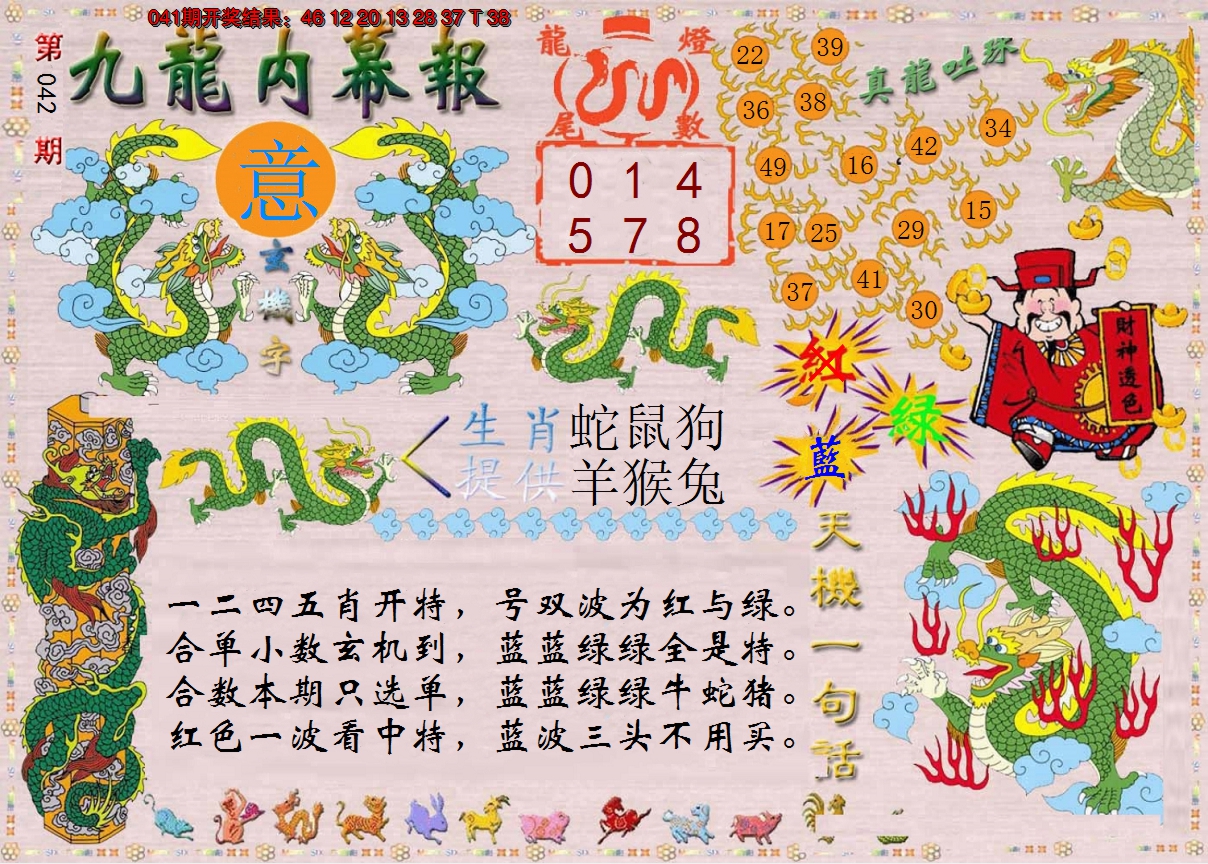 041期开奖结果：46 12 20 13 28 37 T 38
第042期
九龍内幕報
意
玄機字
龍燈
尾數
0 1 4
5 7 8
真龍吐珠
22
39
36
38
42
34
49
16
17
25
29
15
37
41
30
財神透色
紅
绿
藍
生肖
提供
蛇鼠狗
羊猴兔
天機一句話
一二四五肖开特，号双波为红与绿。
合单小数玄机到，蓝蓝绿绿全是特。
合数本期只选单，蓝蓝绿绿牛蛇猪。
红色一波看中特，蓝波三头不用买。